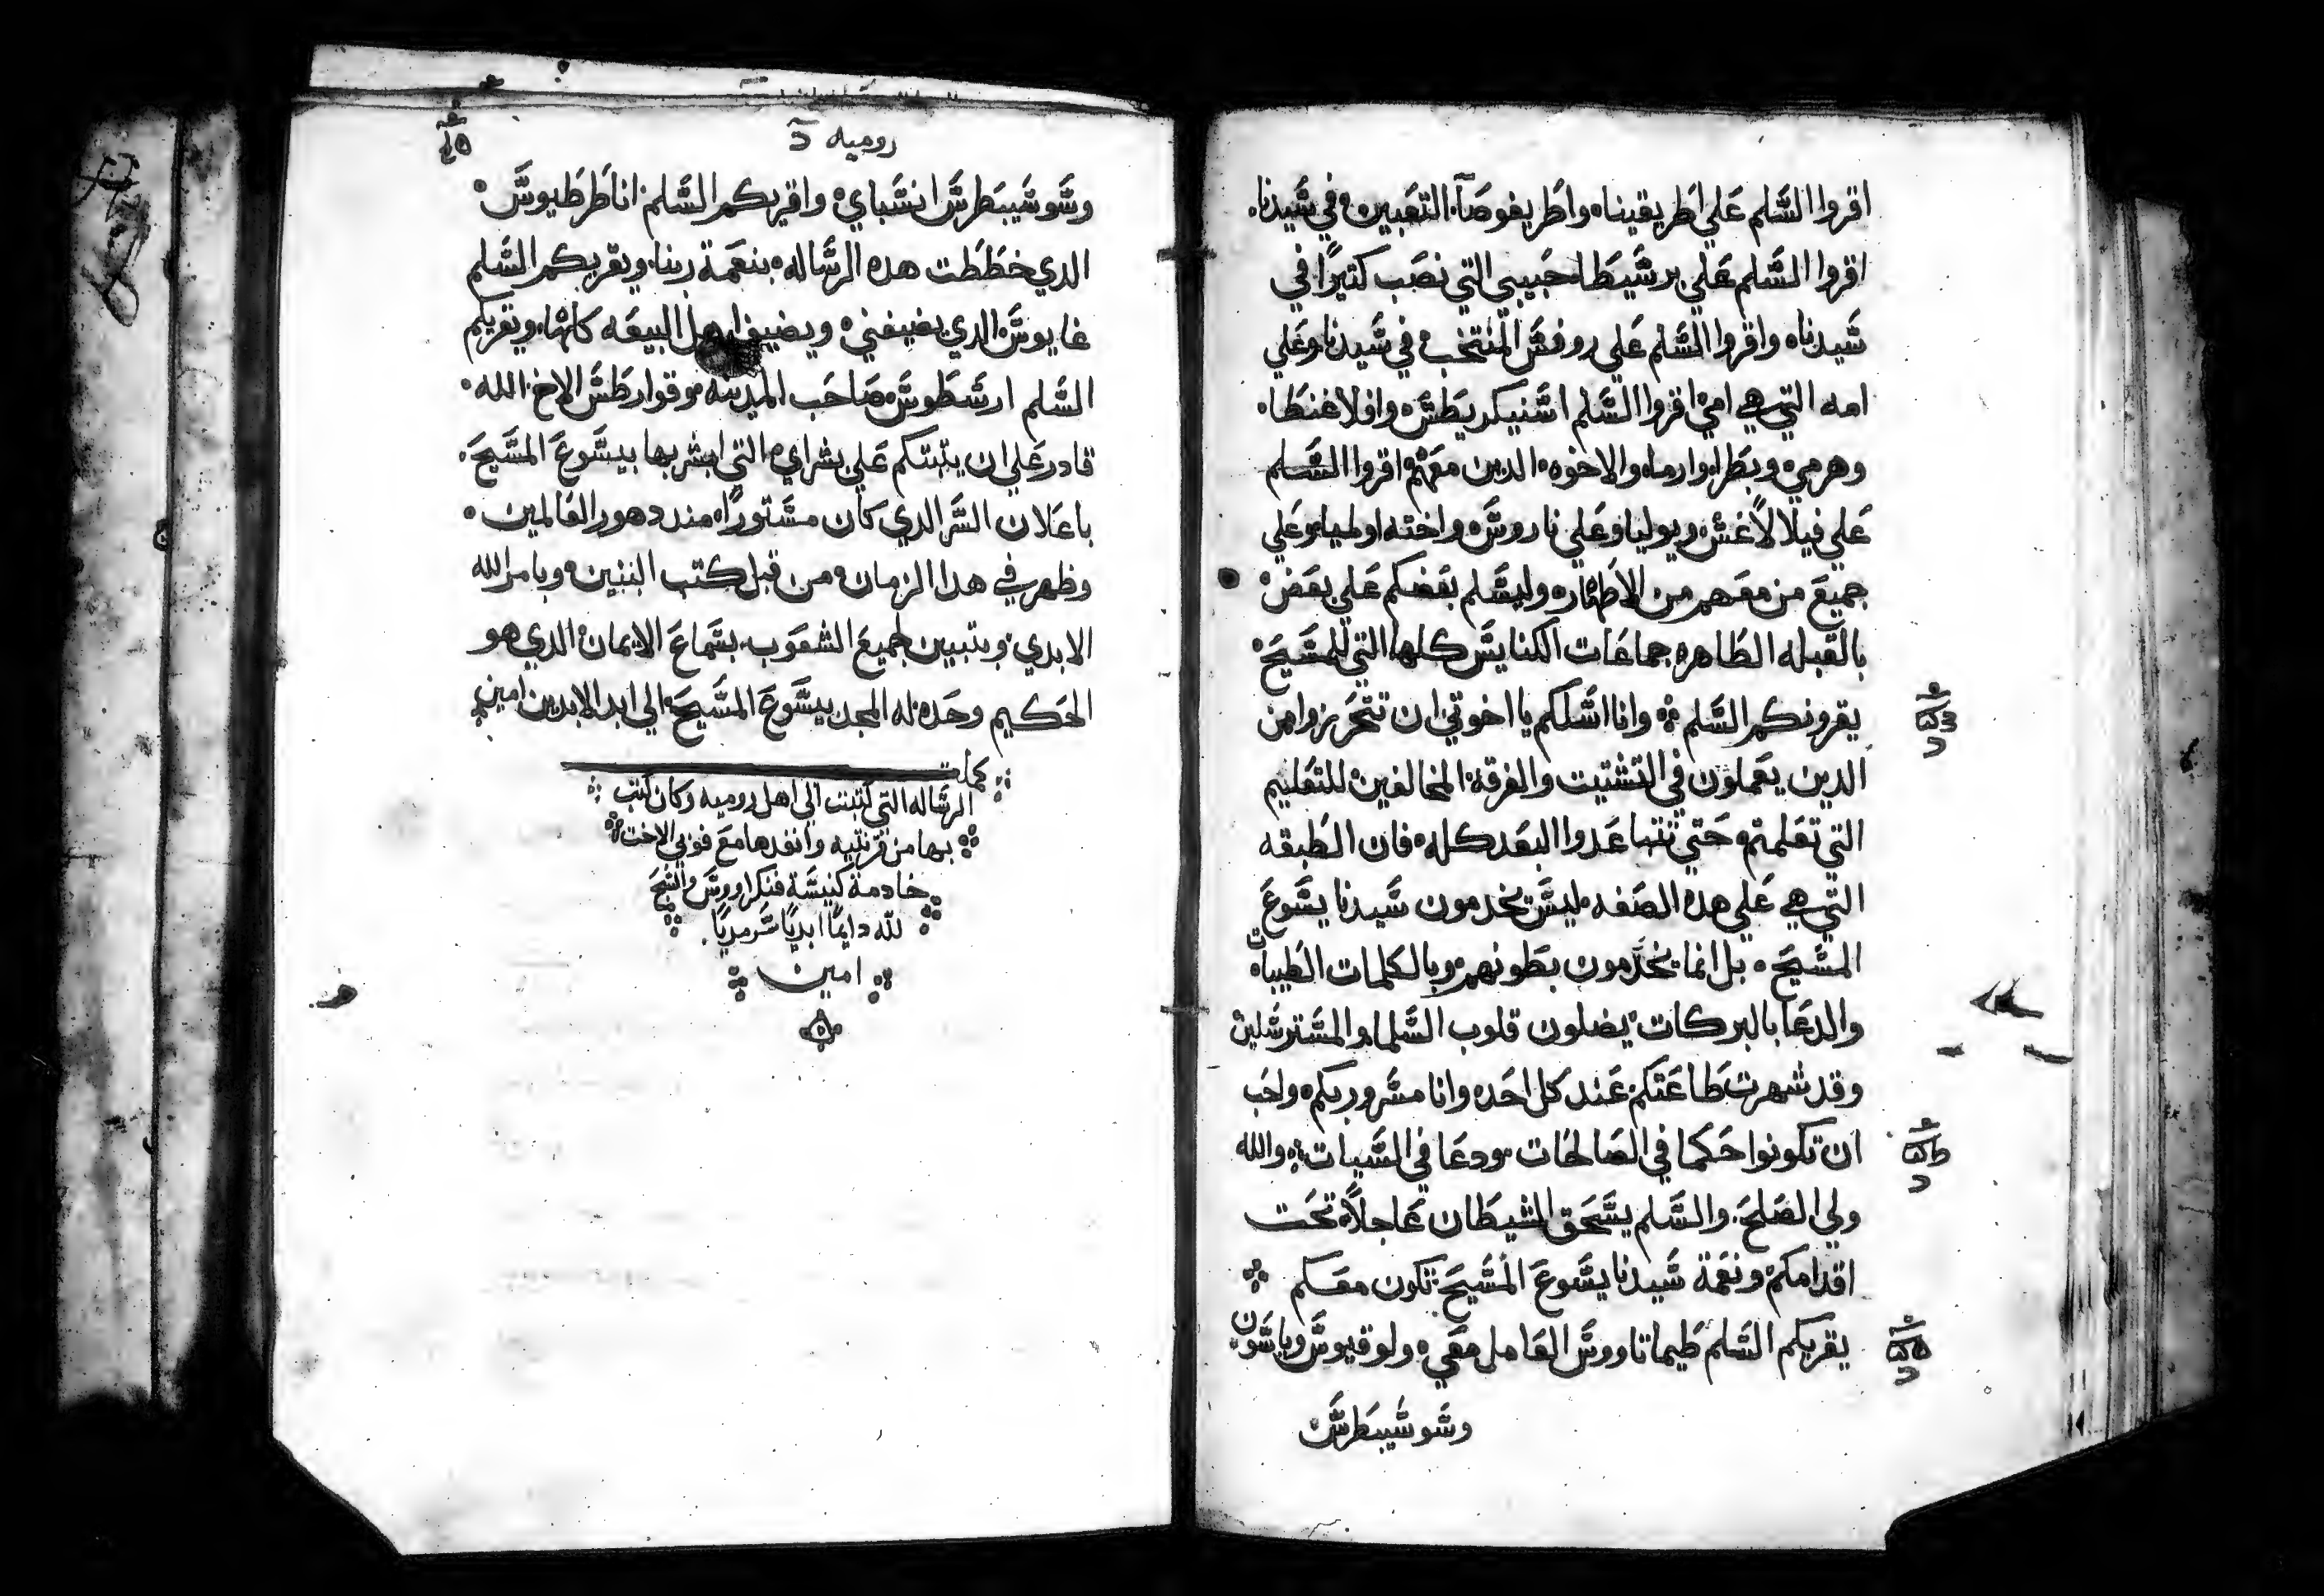 اقروا السَّلم عَلي اطريقينا، واطريفوصَآ، التعَبين، في سَّيدنا.
اقروا السَّلم عَلي برسَّيطَا، حَبيبي التي نصَب كتيرًا في
سَّيدنا، واقروا السَّلم عَلي روفسَّ المنتخب، في سَّيدنا، وعَلي
امه التي هي امي، اقروا السَّلم اسَّنيكريطسَّ، وافلاغنطَا،
وهرمي، وبطَرا، وارما، والاخوه، الدين معَهم، اقروا السَّلم
عَلي فيلالاًغسَّ، ويوليا، وعَلي ناروسَّ، واخته اولمبيا، وعَلي
جميعَ من معَهم من الاطَهار، وليسَّلم بعَضكم عَلي بعَض،
بالقبله الطَاهره، جماعَات الكنايسَّ كلها، التي للمسَّيحَ،
يقرونكم السَّلم ܀ وانا اسَّلكم يا اخوتي، ان تتحَرزوا من
الدين يعَملون في التشتيت، والفرقه، المخالفين، للتعَليم
التي تعَلمتم، حَتي تتباعَدوا البعَد كله، فان الطَبقه
التي هي عَلي هده الصَفه، ليسَّ يخدمون سَّيدنا يسَّوعَ
المسَّيحَ، بل انما يخدمون بطَونهم، وبالكلمات الطَيبات،
والدعَا بالبركات، يضلون قلوب السَّلما، والمسَّترسَّلين،
وقد شهرت طَاعَتكم، عَند كل احَد، وانا مسَّرور بكم، واحَب
ان تكونوا حَكما في الصَالحَات، ودعَا في السَّيات ܀ والله
ولي الصَلحَ، والسَّلم يسَّحَق الشيطَان عَاجلاً، تحَت
اقدامكم، ونعَمة سَّيدنا يسَّوعَ المسَّيحَ، تكون معَكم ܀
يقريكم السَّلم طَيماتاووسَّ العَامل معَي، ولوقيوسَّ، وياسَّون،
وسَّوسَّيبطَرسَّ
روميه
وسَّوسَّيبطَرسَّ انسَّباي، واقريكم السَّلم، انا طَرطَيوسَّ،
الدي خطَطَت هده الرسَّاله، بنعَمة ربنا، ويقريكم السَّلم
غايوسَّ، الدي يضيفني، ويضيف اهل البيعَه كلها، ويقريكم
السَّلم ارسَّطَوسَّ، صَاحَب المدينه، وقوارطَسَّ الاخ، الله،
قادر عَلي ان يتبتكم عَلي بشراي، التي ابشر بها بيسَّوعَ المسَّيحَ،
باعَلان السَّر الدي كان مسَّتورًا، مند دهور العَالمين،
وظهر في هدا الزمان، من قبل كتب النبنين، وبامر الله
الابدي، وبتبيين لجميعَ الشعَوب، بسَّماعَ الايمان، الدي هو
الحَكيم وحَده، له المجد بيسَّوعَ المسَّيحَ، الي ابد الابدين امين
كملت
الرسَّاله التي كتبت الي اهل روميه وكان كتب
بها من قرنتيه وانفدها معَ فوبي الاخت
خادمة كنيسَّة قنكراووسَّ والسَّبحَ
لله دايمًا ابديًا سَّرمديًا.
امين